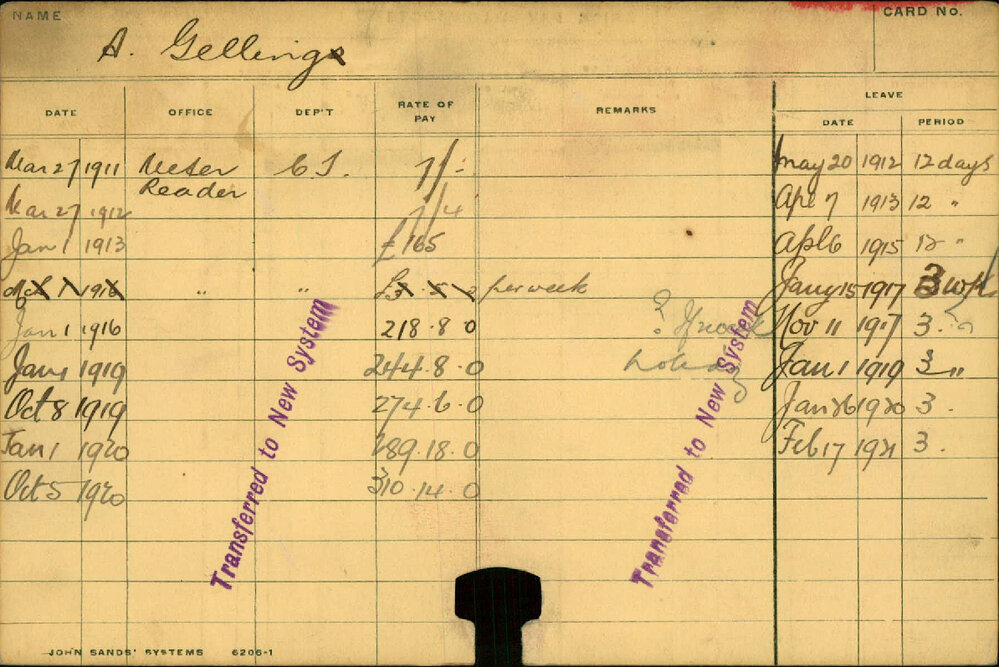 NAME
CARD No.
A. Gelling
DATE OFFICE DEP'T RATE OF PAY REMARKS LEAVE
DATE PERIOD
Mar 27 1911 Meter Reader C.T. 7/- May 20 1912 12 days
Mar 27 1912 7/4 Apl 7 1913 12 "
Jan 1 1913 £165 Apl 6 1915 12 "
1916 " " £3 . 5 . 2 per week Jany 15 1917 3 wks
Jan 1 1916 218 . 8 0 ? Nov 11 1917 3 . "
Jan 1 1919 244 . 8 . 0 Jan 1 1919 3 "
Oct 8 1919 274 . 6 . 0 Jan 26 1920 3 .
Jan 1 1920 289 . 18 . 0 Feb 17 1921 3 .
Oct 5 1920 310 . 14 . 0
Transferred to New System
Transferred to New System
JOHN SANDS' SYSTEMS 6206-1